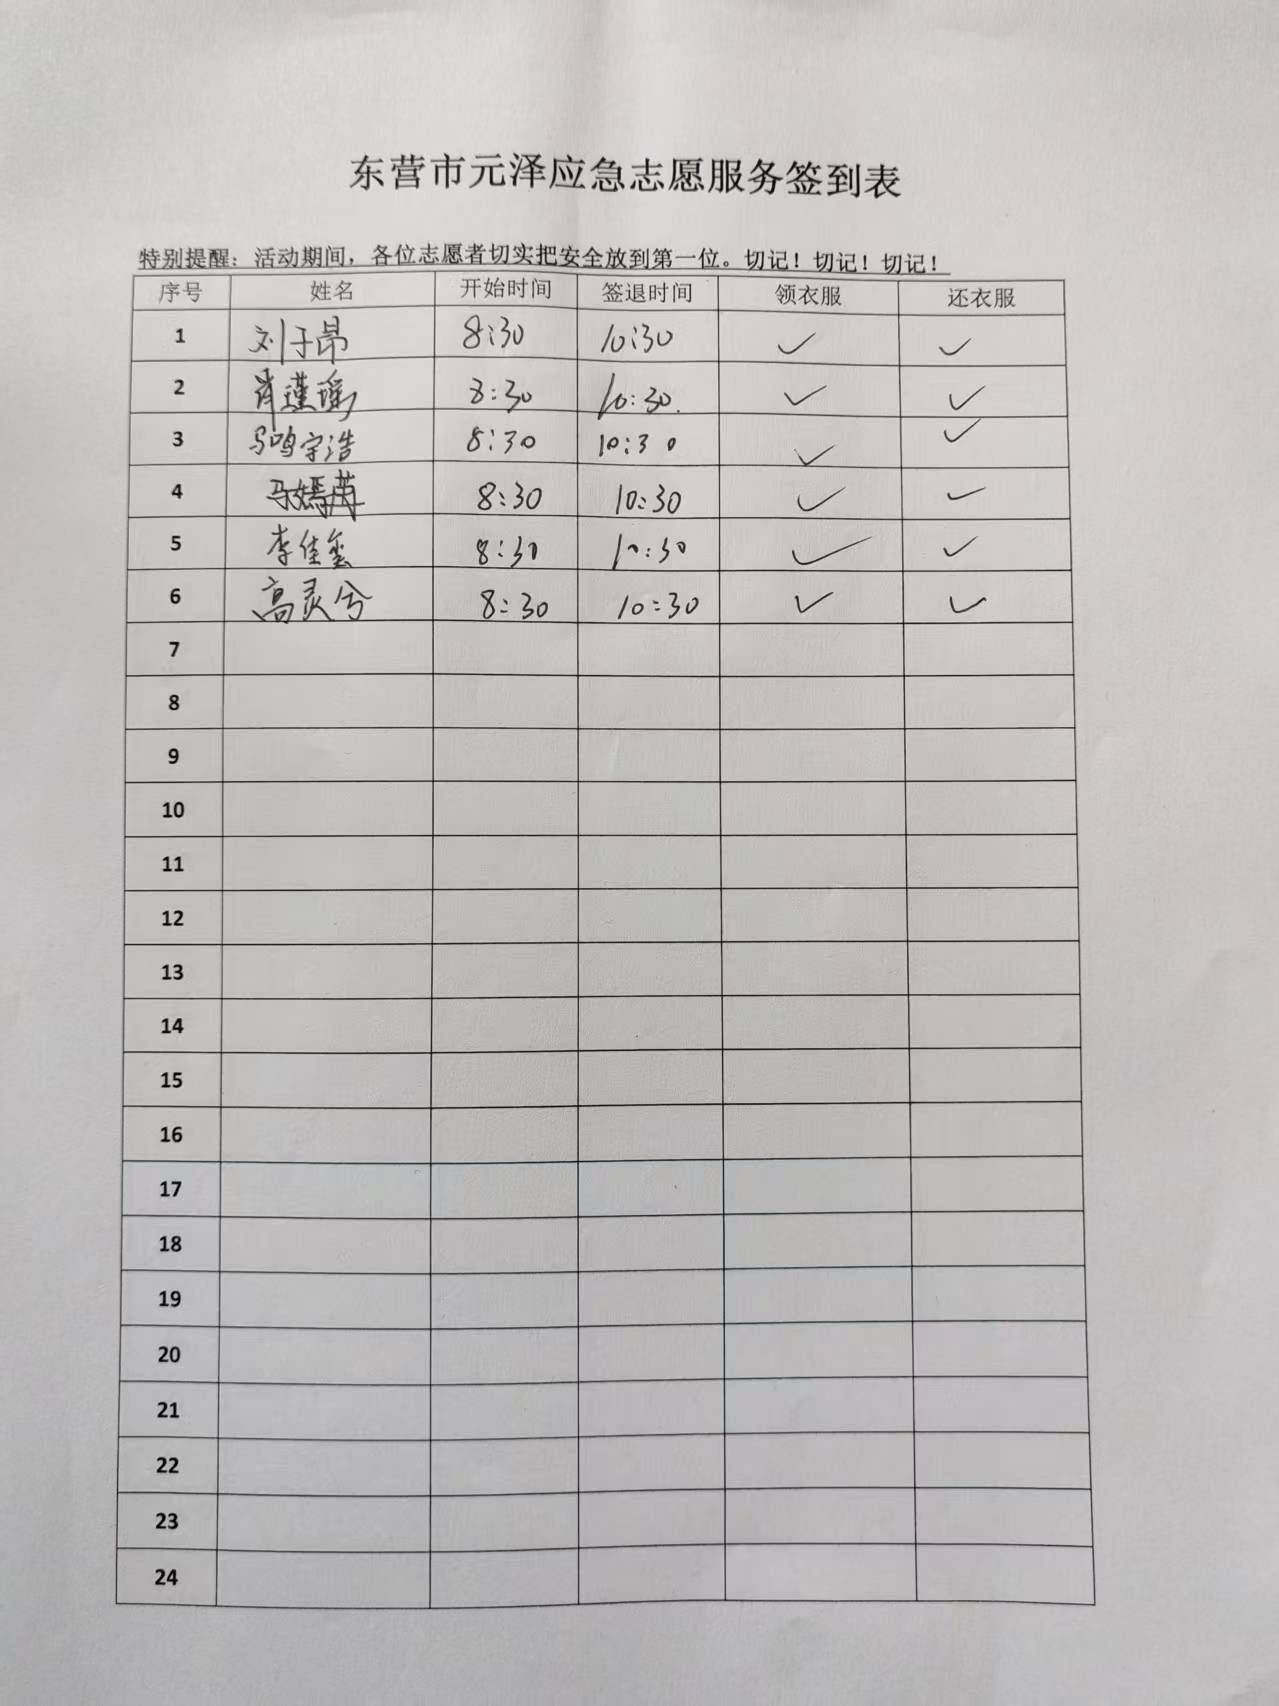 东营市元泽应急志愿服务签到表
特别提醒：活动期间，各位志愿者切实把安全放到第一位。切记！切记！切记！
序号 姓名 开始时间 签退时间 领衣服 还衣服
1 刘子昂 8:30 10:30 ✓ ✓
2 肖瑾瑶 8:30 10:30. ✓ ✓
3 马鸣宇浩 8:30 10:30 ✓ ✓
4 马嫣 8:30 10:30 ✓ ✓
5 李佳玺 8:30 10:30 ✓ ✓
6 高灵兮 8:30 10:30 ✓ ✓
7
8
9
10
11
12
13
14
15
16
17
18
19
20
21
22
23
24